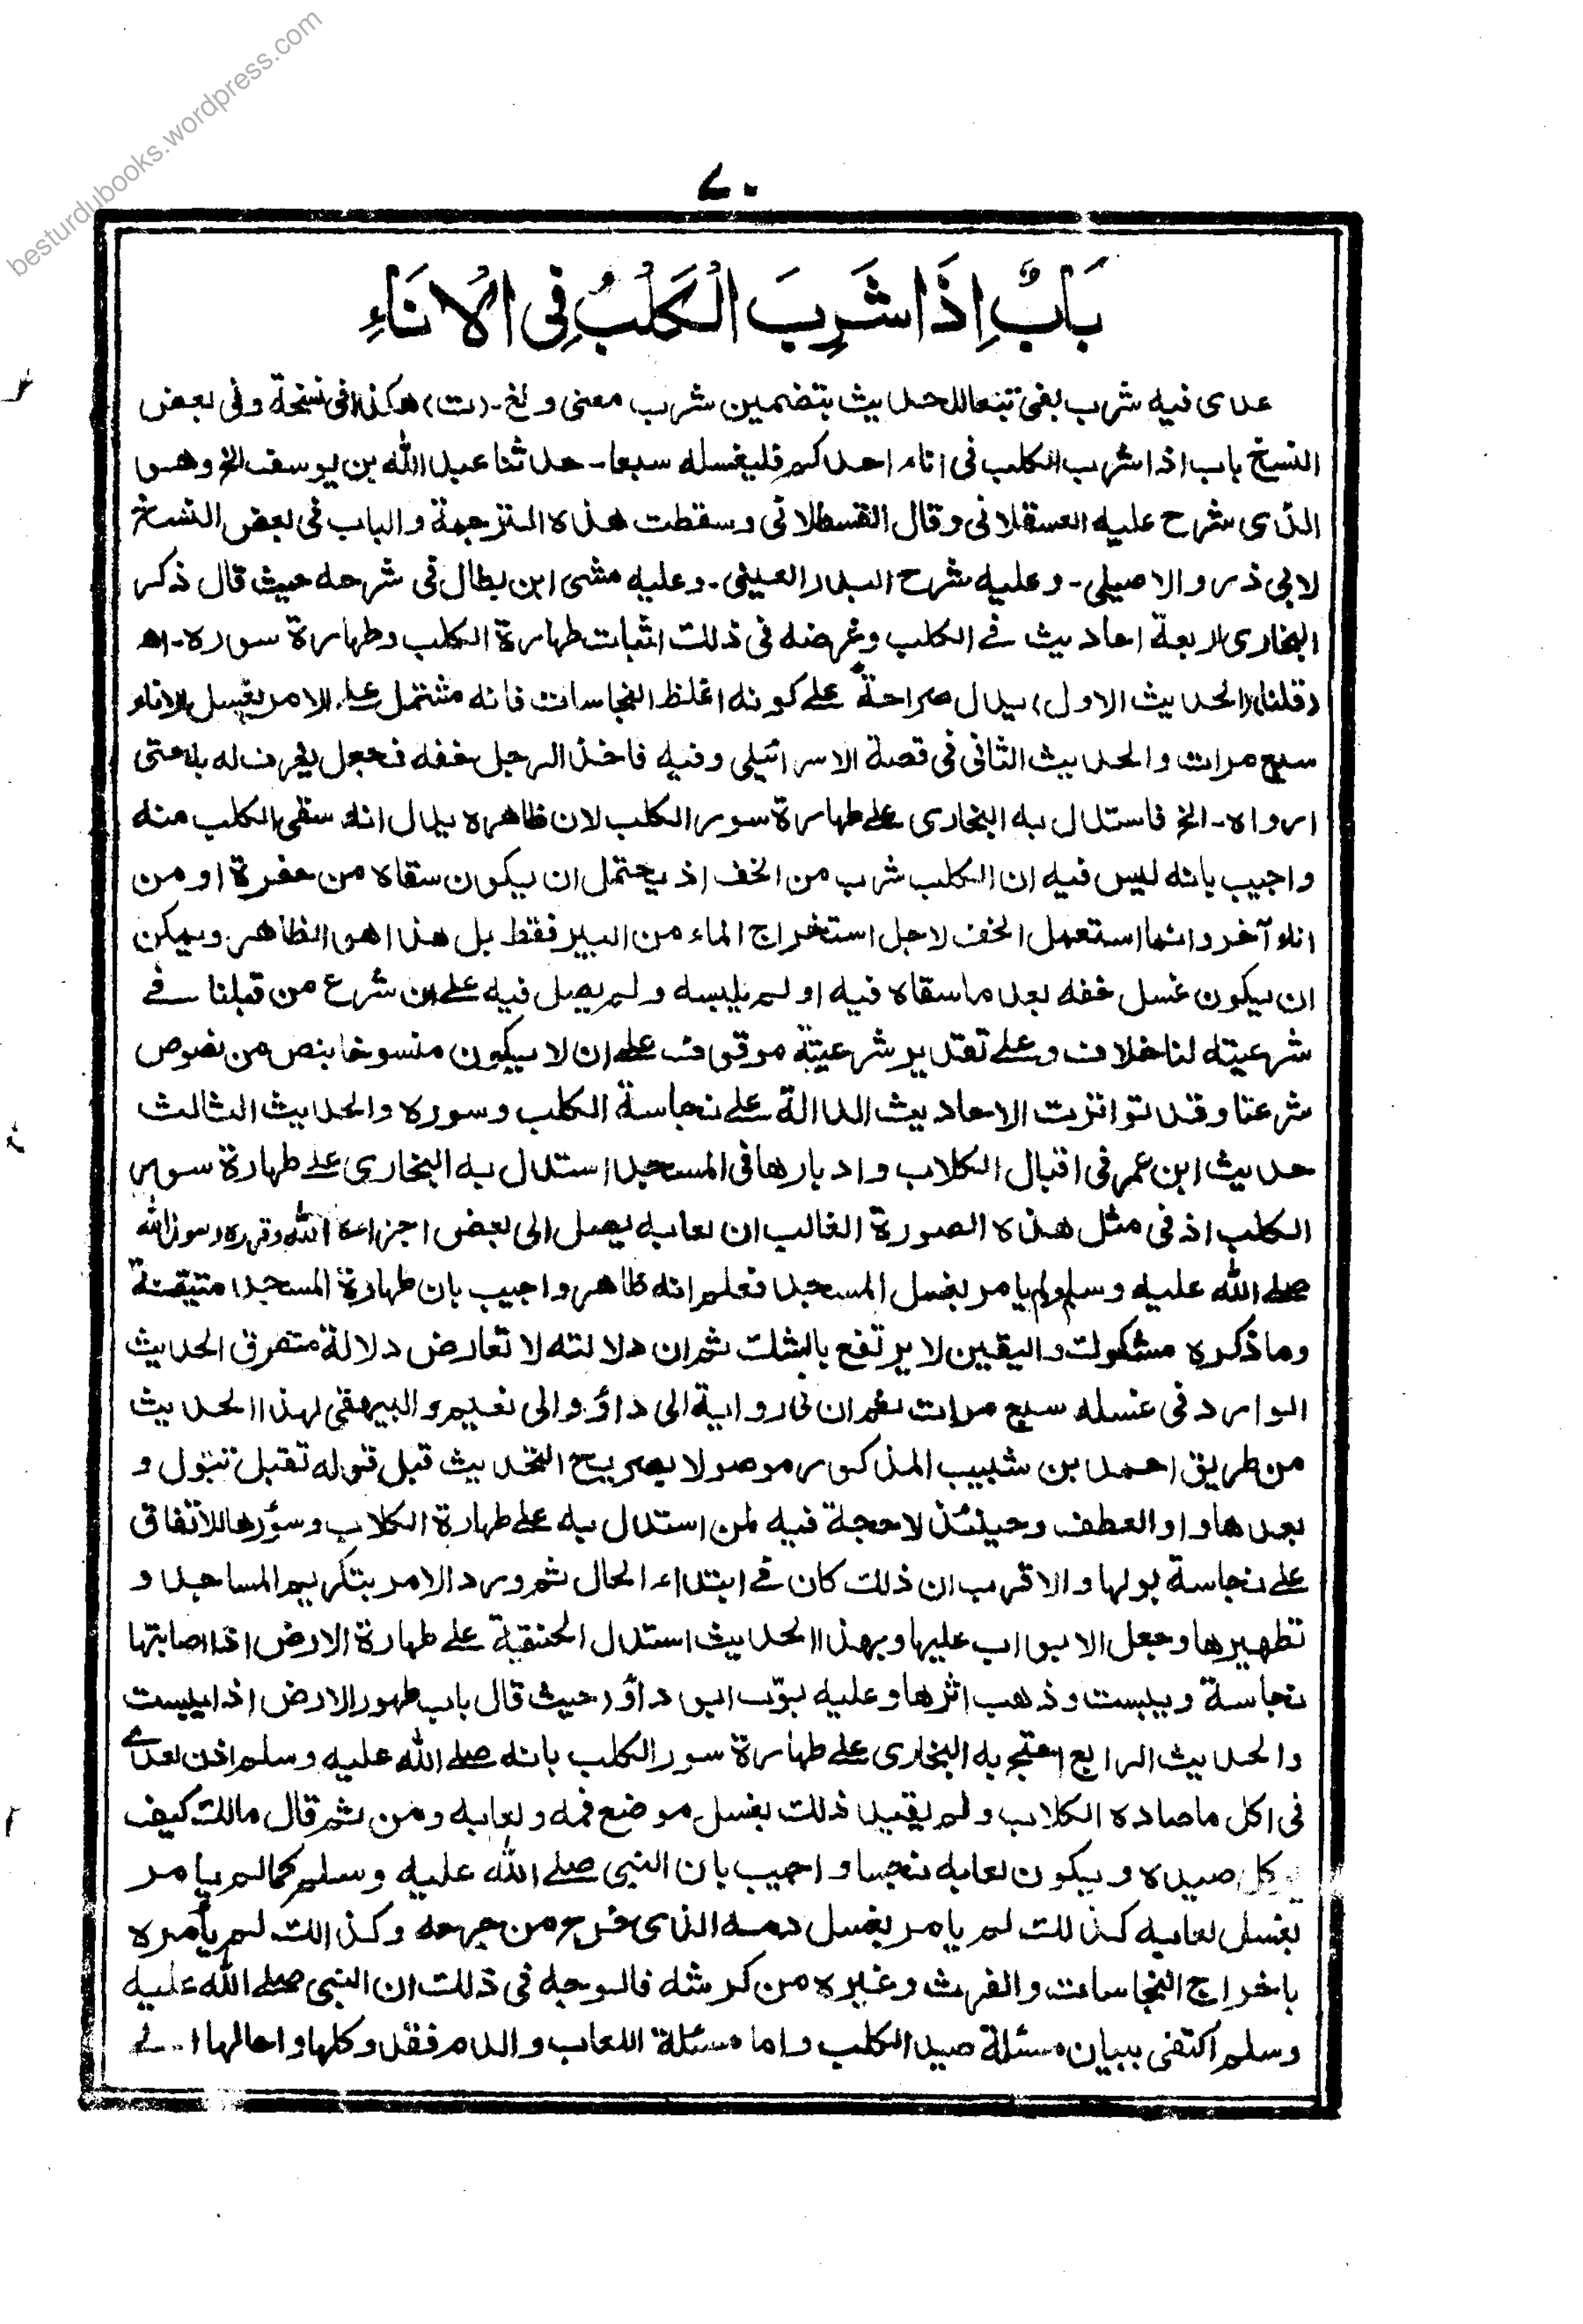 besturdubooks.wordpress.com
۷۰
بَابٌ اِذَا شَرِبَ الْكَلْبُ فِی الْاِنَاءِ
عدی فیه شرب بفی تبعا للحدیث بتضمین شرب معنی ولغ۔ (ت) هكذا فی نسخة وفی بعض
النسخ باب اذا شرب الكلب فی اناء احدكم فلیغسله سبعا۔ حدثنا عبد الله بن یوسف الخ وهو
الذی شرح علیه العسقلانی وقال القسطلانی وسقطت هذه الترجمة والباب فی بعض النسخ
لابی ذر والاصیلی۔ وعلیه شرح البدر العینی۔ وعلیه مشی ابن بطال فی شرحه حیث قال ذكر
البخاری اربعة احادیث فے الكلب وغرضه فی ذلك اثبات طهارة الكلب وطهارة سوره۔ اھ
(قلنا) (الحدیث الاول) یدل صراحة علے كونه اغلظ النجاسات فانه مشتمل علے الامر بغسل الاناء
سبع مرات والحدیث الثانی فی قصة الاسرائیلی وفیه فاخذ الرجل خفه فجعل یغرف له به حتی
ارواه۔ الخ فاستدل به البخاری علے طهارة سور الكلب لان ظاهره یدل انه سقی الكلب منه
واجیب بانه لیس فیه ان الكلب شرب من الخف اذ یحتمل ان یكون سقاه من حفرة او من
اناء آخر وانما استعمل الخف لاجل استخراج الماء من البیر فقط بل هذا هو الظاهر ویمكن
ان یكون غسل خفه بعد ما سقاه فیه او لم یلبسه ولم یصل فیه علے ان شرع من قبلنا فے
شرعیته لنا خلاف وعلے تقدیر شرعیته موقوف علے ان لا یكون منسوخا بنص من نصوص
شرعنا وقد تواترت الاحادیث الدالة علے نجاسة الكلب وسوره والحدیث الثالث
حدیث ابن عمر فی اقبال الكلاب وادبارها فی المسجد استدل به البخاری علے طهارة سور
الكلب اذ فی مثل هذه الصورة الغالب ان لعابه یصل الی بعض اجزاءه وقرره رسول الله
صلے الله علیه وسلم ولم یامر بغسل المسجد فعلم انه ظاهر واجیب بان طهارة المسجد متیقنة
وما ذكره مشكوك والیقین لا یرتفع بالشك ثم ان دلالته لا تعارض دلالة متصرق الحدیث
الوارد فی غسله سبع مرات نعم ان فی روایة ابی داؤد وابی نعیم والبیهقی لهذا الحدیث
من طریق احمد بن شبیب المذكور موصولا بصریح التحدیث قبل قوله تقبل تبول و
بعدها واو العطف وحینئذ لا حجة فیه لمن استدل به علے طهارة الكلاب وسؤرها للاتفاق
علے نجاسة بولها والاقرب ان ذلك كان فے ابتداء الحال ثم ورد الامر بتكریم المساجد و
تطهیرها وجعل الابواب علیها وبهذا الحدیث استدل الحنفیة علے طهارة الارض اذا اصابتها
نجاسة ویبست وذهب اثرها وعلیه بوّب ابو داؤد حیث قال باب طهور الارض اذا یبست
والحدیث الرابع احتج به البخاری علے طهارة سور الكلب بانه صلے الله علیه وسلم اذن لعدی
فی اكل ما صاده الكلاب ولم یقید ذلك بغسل موضع فمه ولعابه ومن ثم قال مالك كیف
یوكل صیده ویكون لعابه نجسا واجیب بان النبی صلے الله علیه وسلم كما لم یامر
بغسل لعابه كذلك لم یامر بغسل دمه الذی خرج من جرحه وكذالك لم یأمره
باخراج النجاسات والفرث وغیره من كرشه فالوجه فی ذلك ان النبی صلے الله علیه
وسلم اكتفی ببیان مسئلة صید الكلب واما مسئلة اللعاب والدم فقد وكلها واحالها الے